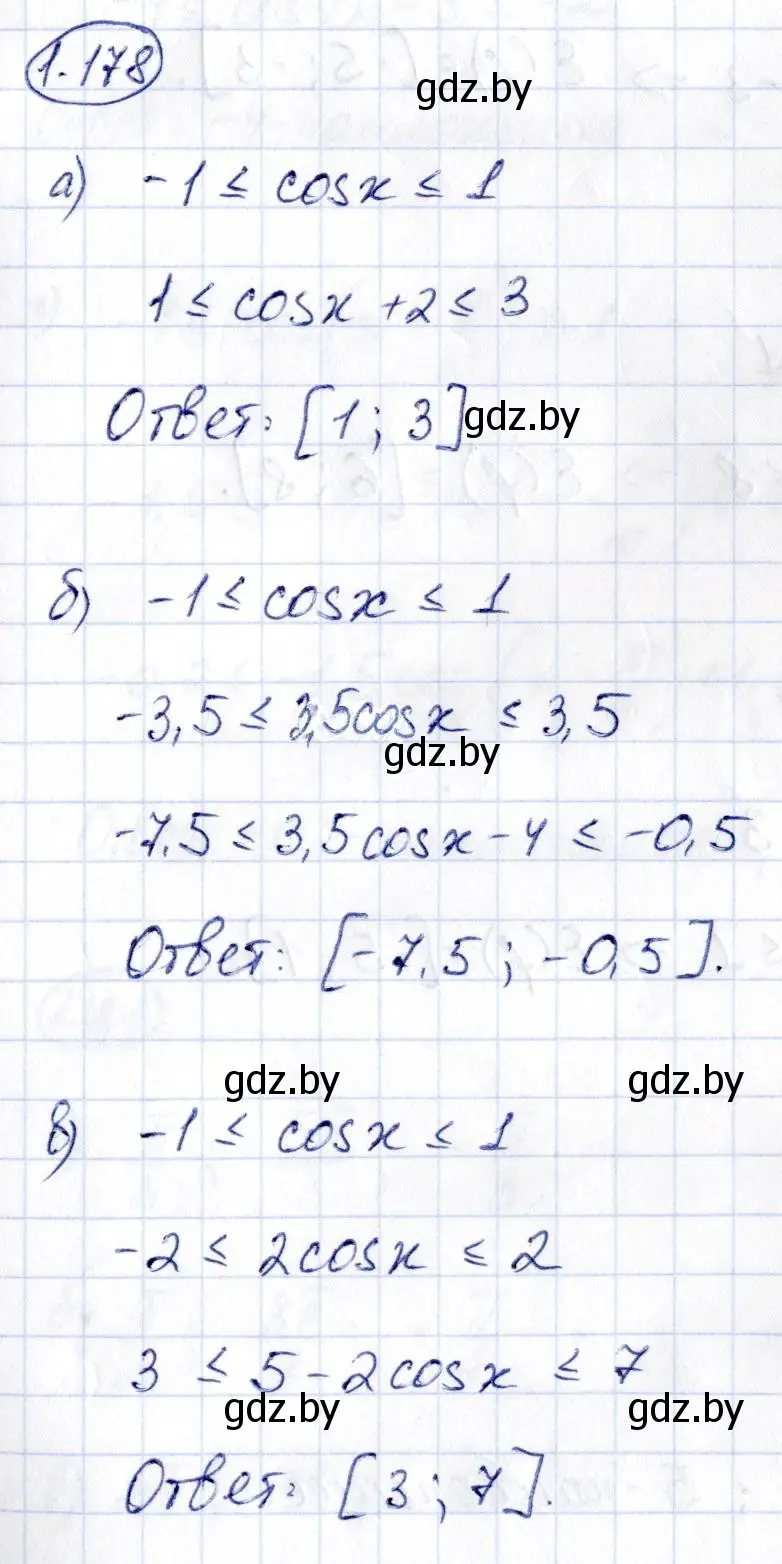 1.178
gdz.by
а) -1 ≤ cosx ≤ 1
1 ≤ cosx +2 ≤ 3
Ответ: [1; 3]
gdz.by
б) -1 ≤ cosx ≤ 1
-3,5 ≤ 3,5cosx ≤ 3,5
gdz.by
-7.5 ≤ 3,5cosx-4 ≤ -0,5
Ответ: [-7.5; -0,5].
gdz.by gdz.by
в) -1 ≤ cosx ≤ 1
-2 ≤ 2cosx ≤ 2
3 ≤ 5-2cosx ≤ 7
gdz.by gdz.by
Ответ: [3; 7].